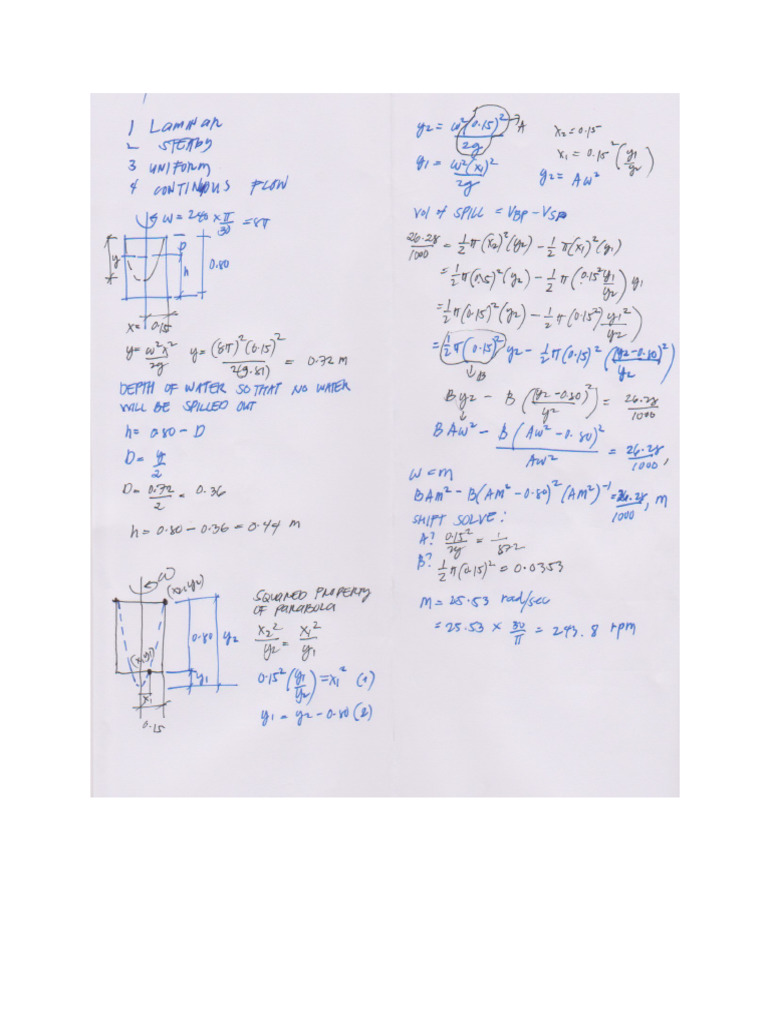 1 LAMINAR
2 STEADY
3 UNIFORM
4 CONTINUOUS FLOW
ω = 240 × π/30 = 8π
y
D
h
0.80
x = 0.15
y = ω²x²/2g y = (8π)²(0.15)²/2(9.81) = 0.72 m
DEPTH OF WATER SO THAT NO WATER
WILL BE SPILLED OUT
h = 0.80 - D
D = y/2
D = 0.72/2 = 0.36
h = 0.80 - 0.36 = 0.44 m
ω
(x2,y2)
0.80 y2
(x1,y1)
y1
x1
0.15
SQUARED PROPERTY
OF PARABOLA
x2²/y2 = x1²/y1
0.15²(y1/y2) = x1² (1)
y1 = y2 - 0.80 (2)
y2 = ω²(0.15)²/2g → A
x2 = 0.15
x1 = 0.15²(y1/y2)
y1 = ω²(x1)²/2g
y2 = Aω²
VOL OF SPILL = VBP - VSP
26.28/1000 = 1/2 π(x2)²(y2) - 1/2 π(x1)²(y1)
= 1/2 π(0.15)²(y2) - 1/2 π(0.15² y1/y2) y1
= 1/2 π(0.15)²(y2) - 1/2 π(0.15²) y1²/y2
= 1/2 π(0.15)² y2 - 1/2 π(0.15)² ((y2-0.80)²/y2)
↓ B
By2 - B((y2-0.80)²/y2) = 26.28/1000
BAω² - B(Aω² - 0.80)²/Aω² = 26.28/1000,
ω = m
BAm² - B(Am² - 0.80)²(Am²)⁻¹ = 26.28/1000, m
SHIFT SOLVE:
A? 0.15²/2g = 1/872
B? 1/2 π(0.15)² = 0.0353
m = 25.53 rad/sec
= 25.53 × 30/π = 243.8 rpm